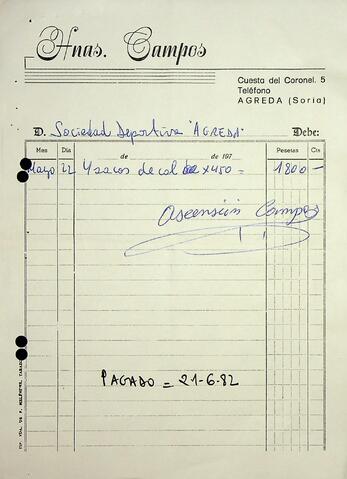 Hnas. Campos
Cuesta del Coronel, 5
Teléfono
AGREDA (Soria)
D. Sociedad Deportiva "AGREDA" Debe:
Mes Día de de 197 Pesetas Cts
Mayo 22 4 sacos de cal x 450 = 1800 —
Ascensión Campos
PAGADO = 21-6-82